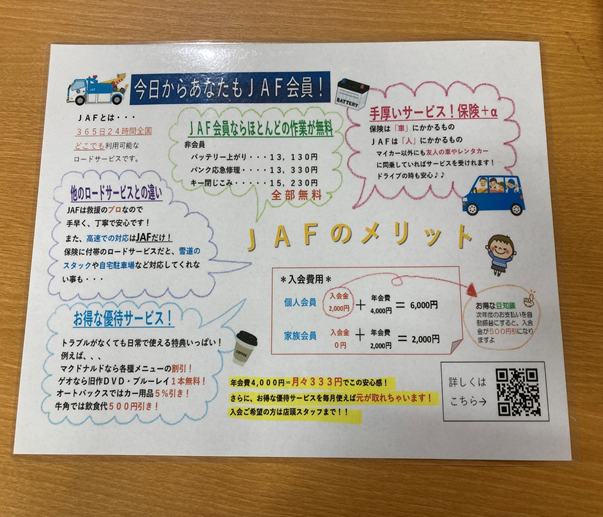 今日からあなたもJAF会員！
BATTERY
JAFとは・・・
365日24時間全国
どこでも利用可能な
ロードサービスです。
JAF会員ならほとんどの作業が無料
非会員
バッテリー上がり・・・・13,130円
パンク応急修理・・・・・13,330円
キー閉じこみ・・・・・・15,230円
全部無料
手厚いサービス！保険+α
保険は「車」にかかるもの
JAFは「人」にかかるもの
マイカー以外にも友人の車やレンタカー
に同乗していればサービスを受けれます！
ドライブの時も安心♪♪
他のロードサービスとの違い
JAFは救援のプロなので
手早く、丁寧で安心です！
また、高速での対応はJAFだけ！
保険に付帯のロードサービスだと、雪道の
スタックや自宅駐車場など対応してくれな
い事も・・・
JAFのメリット
＊入会費用＊
個人会員 入会金 2,000円 + 年会費 4,000円 = 6,000円
家族会員 入会金 0円 + 年会費 2,000円 = 2,000円
お得な豆知識
次年度のお支払いを自
動振替にすると、入会
金が500円引になり
ますよ
お得な優待サービス！
トラブルがなくても日常で使える特典いっぱい！
例えば、、、
マクドナルドなら各種メニューの割引！
ゲオなら旧作DVD・ブルーレイ1本無料！
オートバックスではカー用品5％引き！
牛角では飲食代500円引き！
年会費4,000円=月々333円でこの安心感！
さらに、お得な優待サービスを毎月使えば元が取れちゃいます！
入会ご希望の方は店頭スタッフまで！！
詳しくは
こちら→